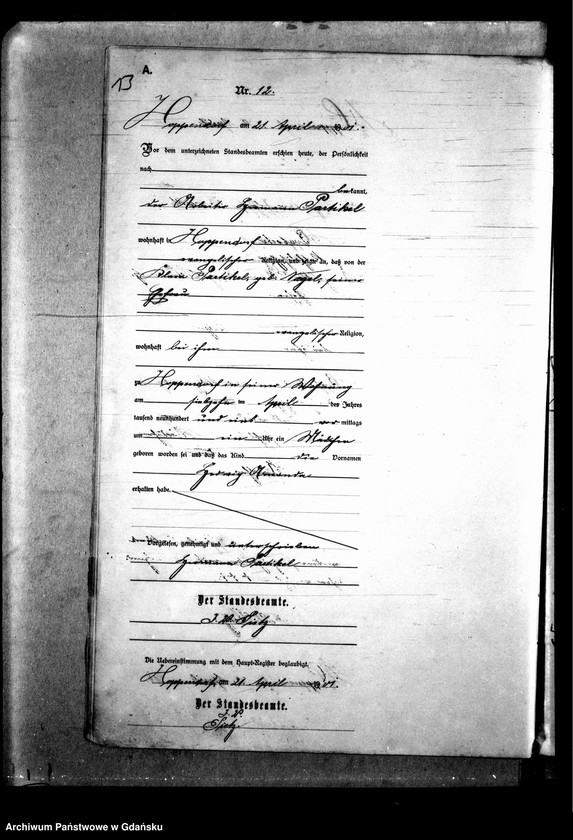 A.
13
Nr. 12.
Hoppendorf am 21. April 1901.
Vor dem unterzeichneten Standesbeamten erschien heute, der Persönlichkeit
nach
bekannt,
der Arbeiter Hermann Partikel
wohnhaft in Hoppendorf
evangelischer Religion, und zeigte an, daß von der
Partikel, geb. Nagel, seiner
Ehefrau
evangelischer Religion,
wohnhaft bei ihm
zu Hoppendorf in seiner Wohnung
am siebzehn ten April des Jahres
tausend neunhundert und eins vor mittags
um ein Uhr ein Mädchen
geboren worden sei und daß das Kind die Vornamen
Hedwig Amanda
erhalten habe.
Vorgelesen, genehmigt und unterschrieben
Hermann Partikel
Der Standesbeamte.
J. V.
Die Uebereinstimmung mit dem Haupt-Register beglaubigt.
Hoppendorf am 21. April 1901.
Der Standesbeamte.
J. V.
Archiwum Państwowe w Gdańsku